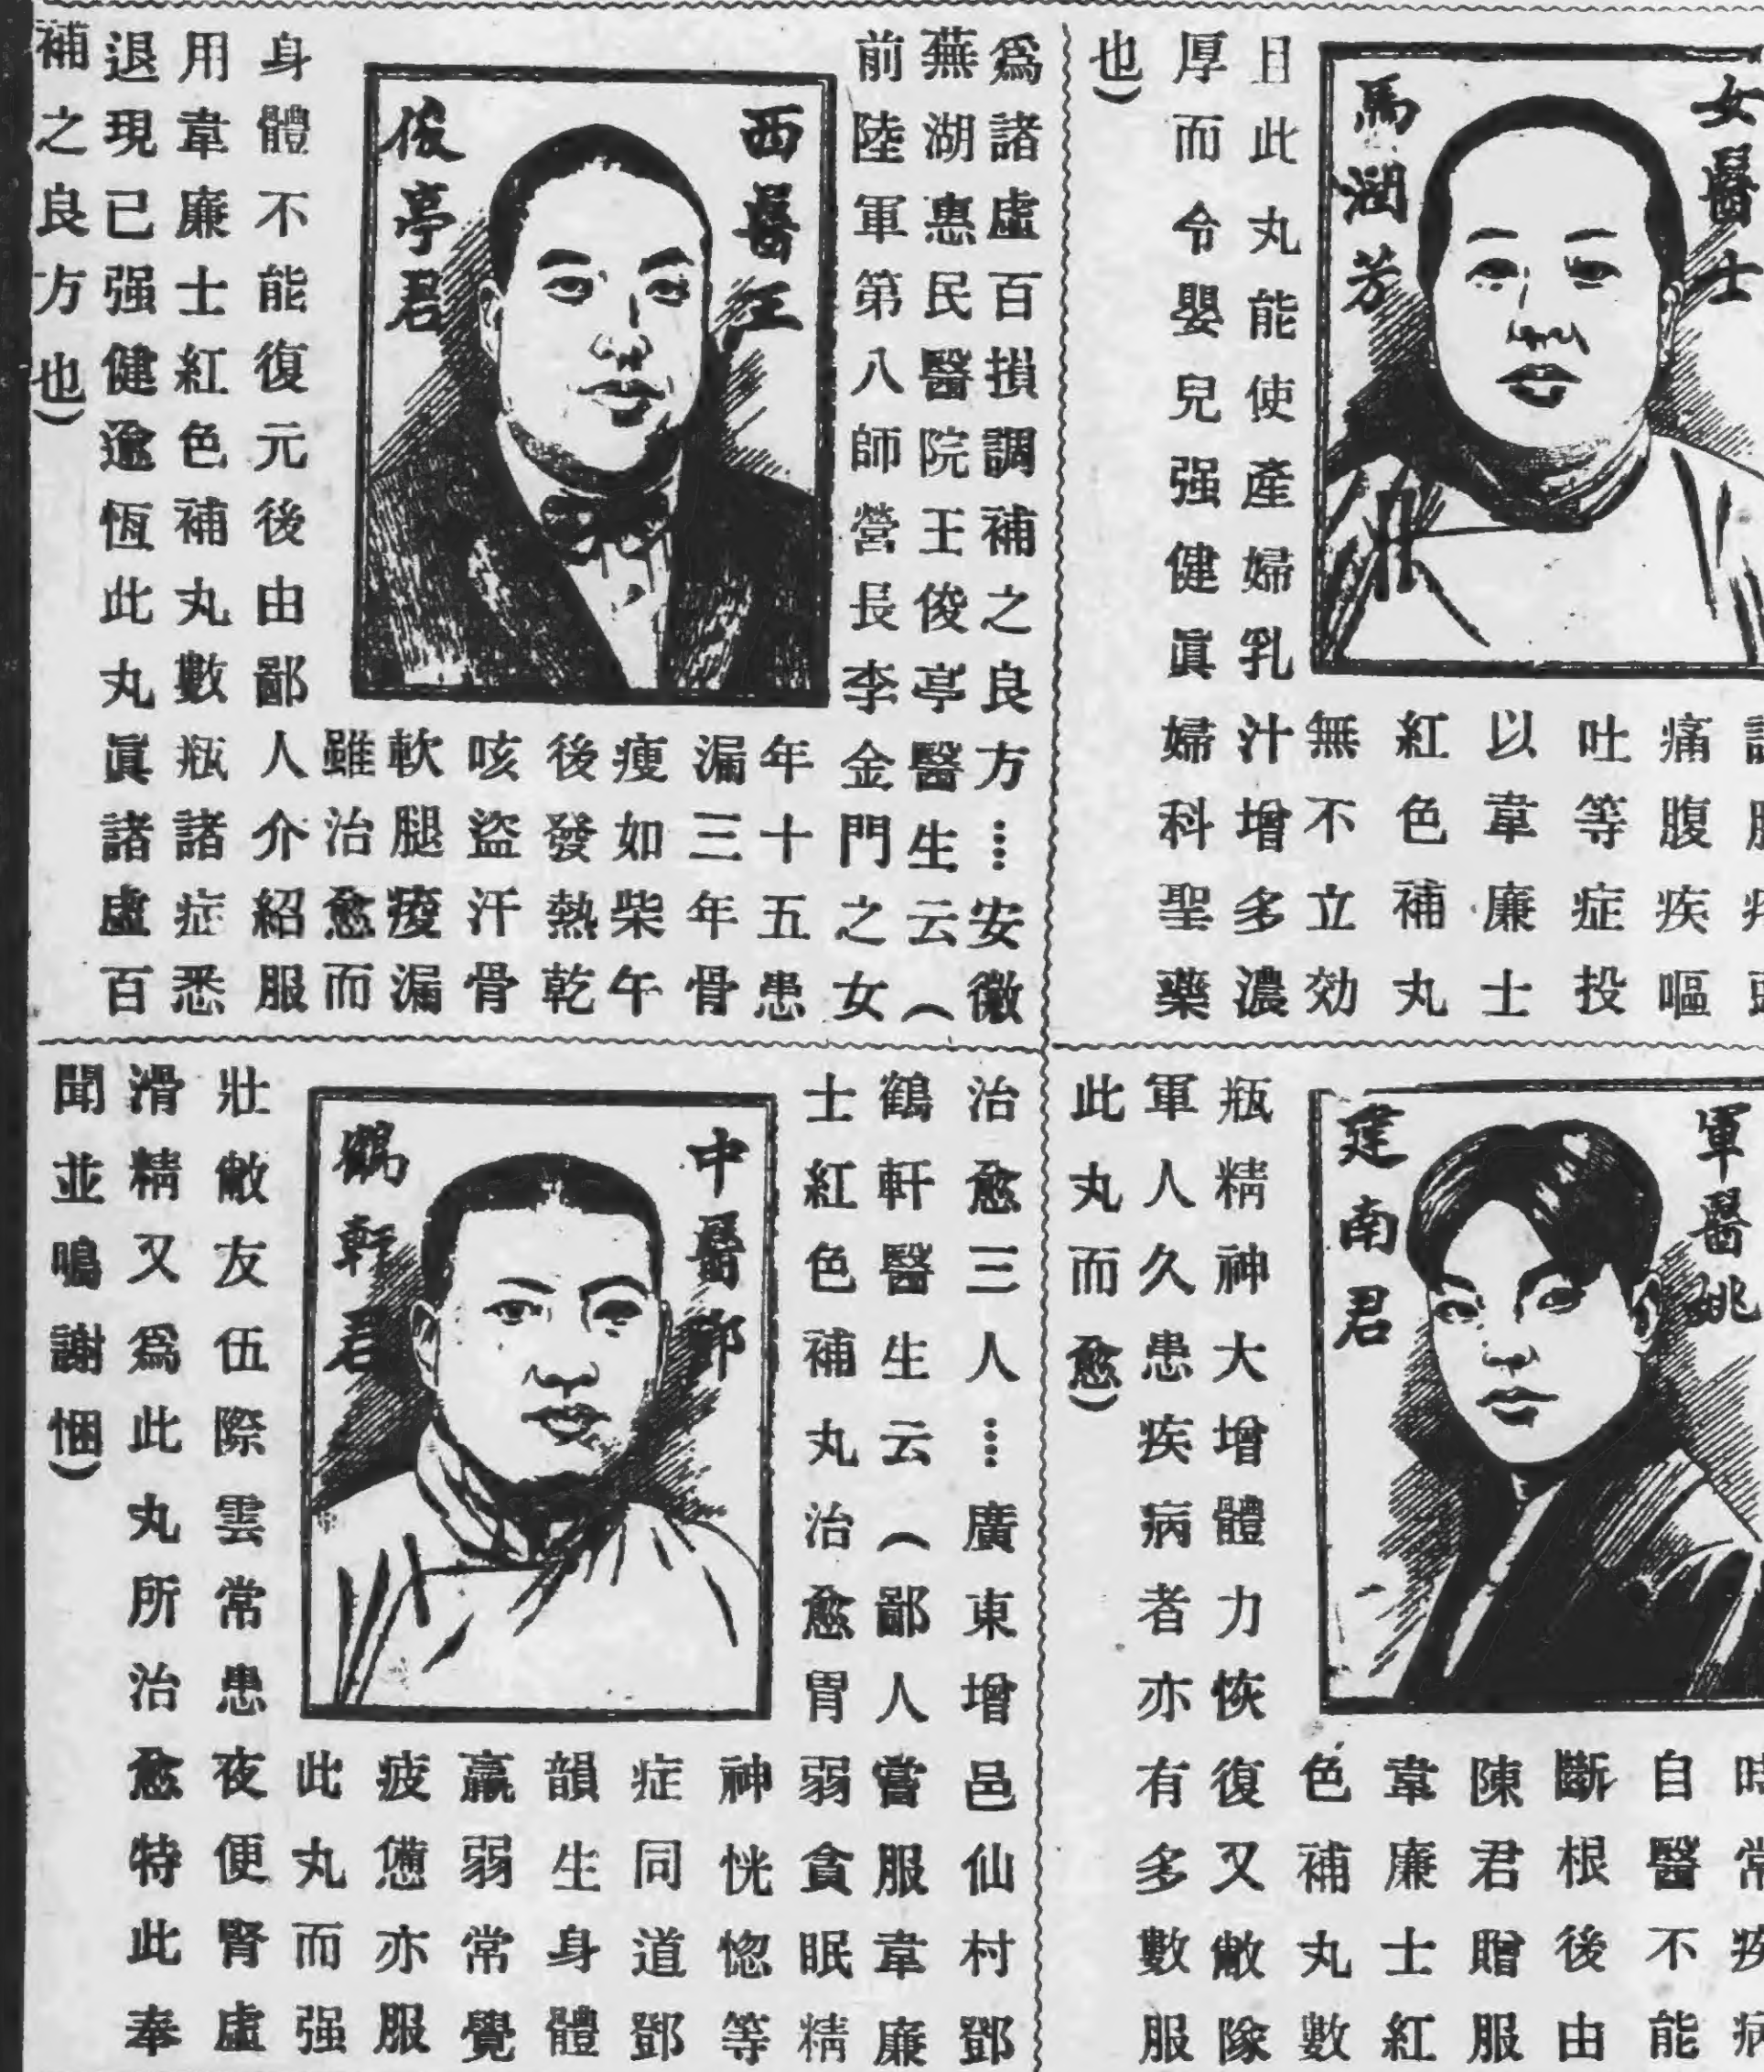 女醫士
馬潤芳
痛腹疾嘔
吐等症投
以韋廉士
紅色補丸
無不立効
且此丸能使產婦乳汁增多濃
厚而令嬰兒强健眞婦科聖藥
也)
爲諸虛百損調補之良方⋯安徽
蕪湖惠民醫院王俊亭醫生云(
前陸軍第八師營長李金門之女
西醫王
俊亭君
年十五患
漏三年骨
瘦如柴午
後發熱乾
咳盜汗骨
軟腿痠漏
雖治愈而
身體不能復元後由鄙人介紹服
用韋廉士紅色補丸數瓶諸症悉
退現已强健逾恆此丸眞諸虛百
補之良方也)
軍醫姚
建南君
自醫不能
斷根後由
陳君贈服
韋廉士紅
色補丸數
瓶精神大增體力恢復又敝隊
軍人久患疾病者亦有多數服
此丸而愈)
治愈三人⋯廣東增邑仙村鄧
鶴軒醫生云(鄙人嘗服韋廉
士紅色補丸治愈胃弱貪眠精
中醫鄧
鶴軒君
神恍惚等
症同道鄧
韻生身體
羸弱常覺
疲憊亦服
此丸而强
壯敝友伍際雲常患夜便腎虛
滑精又爲此丸所治愈特此奉
聞並鳴謝悃)